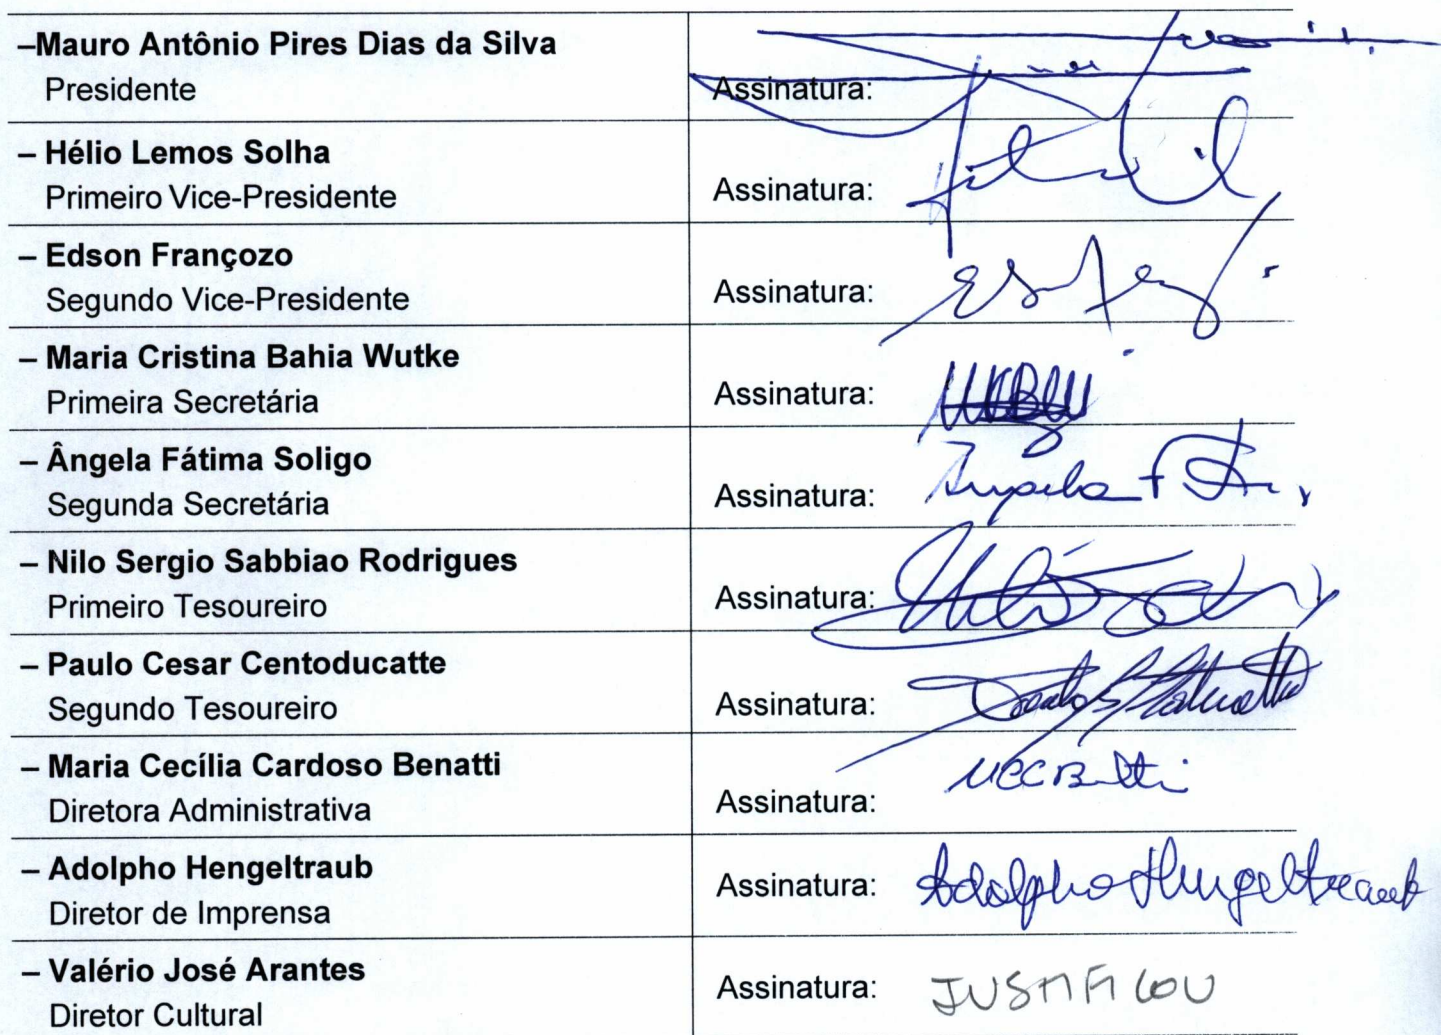 –Mauro Antônio Pires Dias da Silva
Presidente
Assinatura:
– Hélio Lemos Solha
Primeiro Vice-Presidente
Assinatura:
– Edson Françozo
Segundo Vice-Presidente
Assinatura:
– Maria Cristina Bahia Wutke
Primeira Secretária
Assinatura:
– Ângela Fátima Soligo
Segunda Secretária
Assinatura: Angela F
– Nilo Sergio Sabbiao Rodrigues
Primeiro Tesoureiro
Assinatura:
– Paulo Cesar Centoducatte
Segundo Tesoureiro
Assinatura:
– Maria Cecília Cardoso Benatti
Diretora Administrativa
Assinatura:
– Adolpho Hengeltraub
Diretor de Imprensa
Assinatura: Adolpho Hengeltraub
– Valério José Arantes
Diretor Cultural
Assinatura: JUSTIFICOU